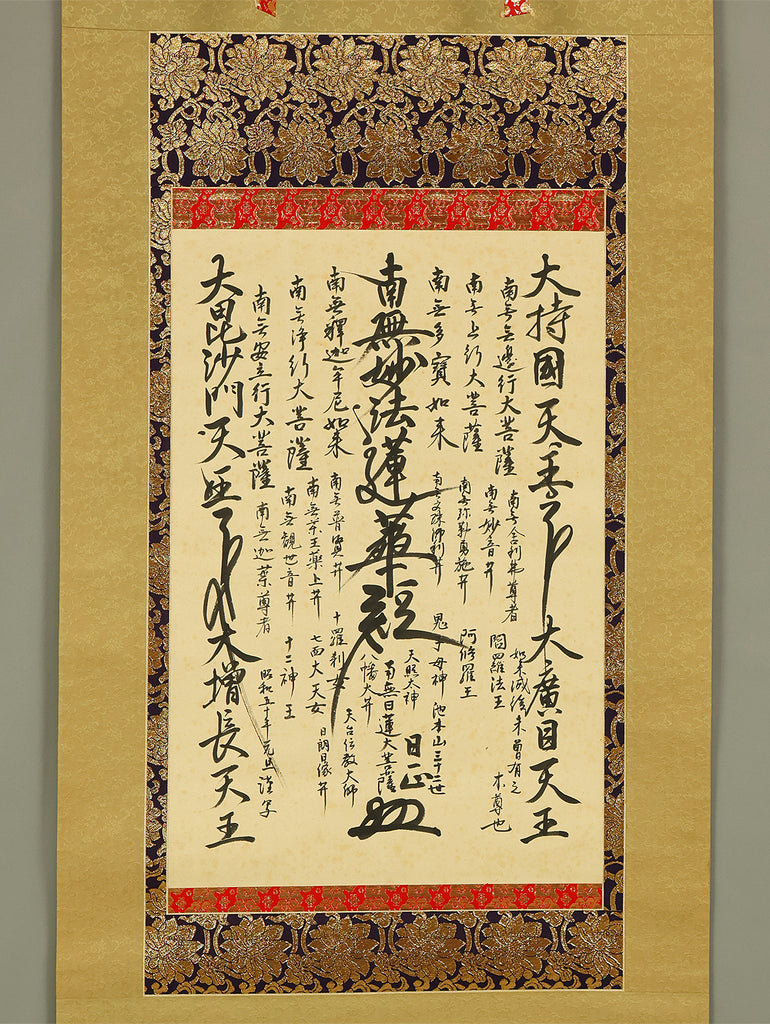 大持國天王
大廣目天王
南無無邊行大菩薩
南無舍利弗尊者
如来滅後未曽有之
大本尊也
南無上行大菩薩
南無妙音菩薩
閻羅法王
南無多寶如来
南無弥勒菩薩
阿修羅王
南無文殊師利菩薩
鬼子母神
池本山三十二世
日正
南無妙法蓮華経
天照大神
八幡大菩薩
南無日蓮大菩薩
南無釋迦牟尼如来
南無普賢菩薩
十羅刹女
天台伝教大師
南無浄行大菩薩
南無薬王薬上菩薩
七面大天女
日朗日像菩薩
南無安立行大菩薩
南無観世音菩薩
十二神王
南無迦葉尊者
昭和五十年元旦謹写
大毘沙門天王
大増長天王